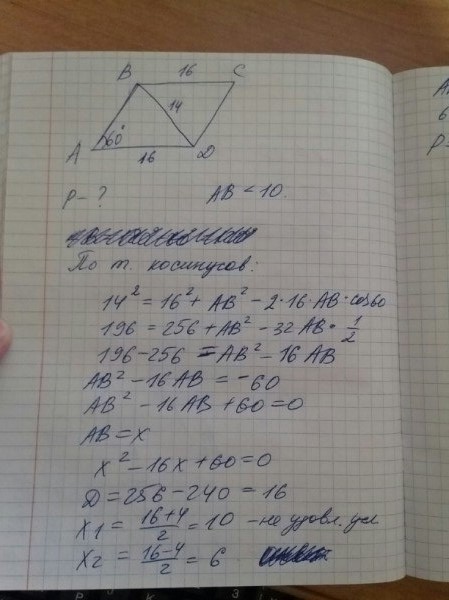 B 16 C
14
A 60° 16 D
P - ? AB < 10.
По т. косинусов:
14² = 16² + AB² - 2·16·AB·cos60
196 = 256 + AB² - 32 AB · 1/2
196 - 256 = AB² - 16 AB
AB² - 16 AB = -60
AB² - 16 AB + 60 = 0
AB = x
x² - 16x + 60 = 0
D = 256 - 240 = 16
x1 = (16+4)/2 = 10 - не удовл. усл
x2 = (16-4)/2 = 6
A
6
P-